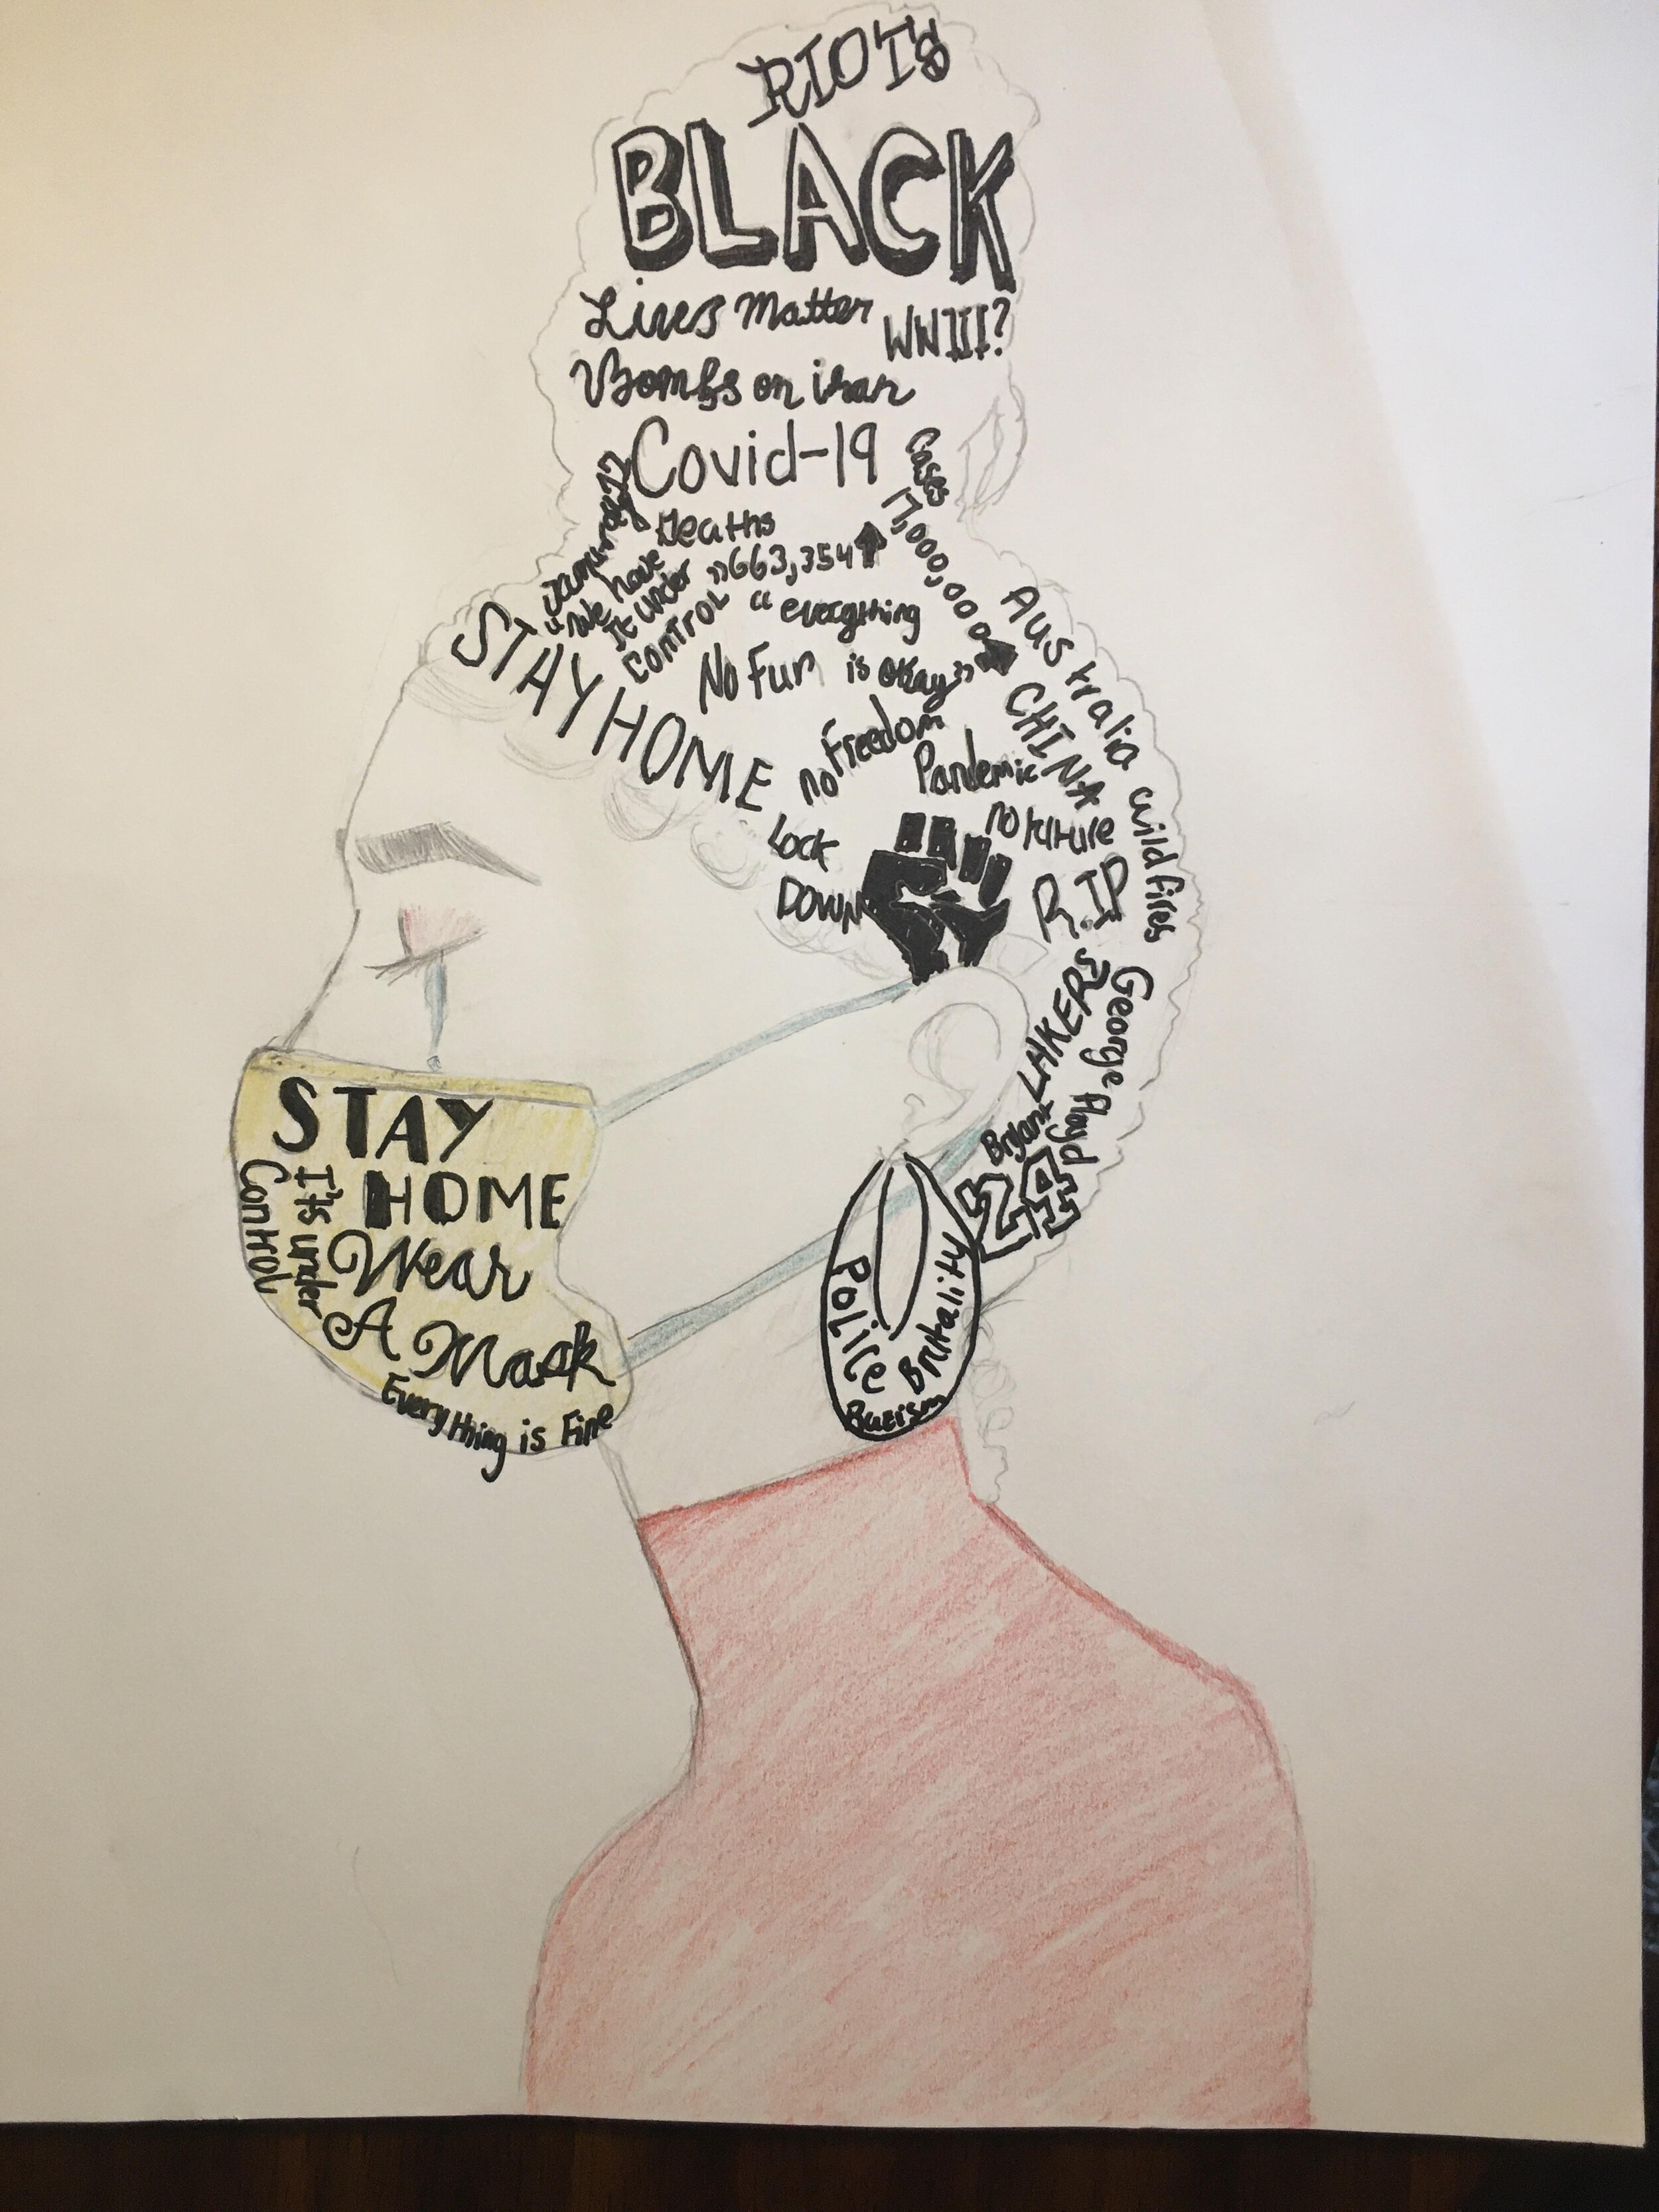 RIOTS
BLACK
Lives Matter
WWIII?
Bombs on iran
Covid-19
Cases
17,000,000
January 22
Deaths
663,354
"We have
It under
control"
"everything
is okay"
STAY HOME
No Fun
no Freedom
Pandemic
Australia wild fires
CHINA
no future
Lock
DOWN
R.I.P
George Floyd
LAKERS
Bryant
24
Police
Brutality
Racism
STAY
HOME
Wear
A Mask
It's under
Control
Everything is Fine